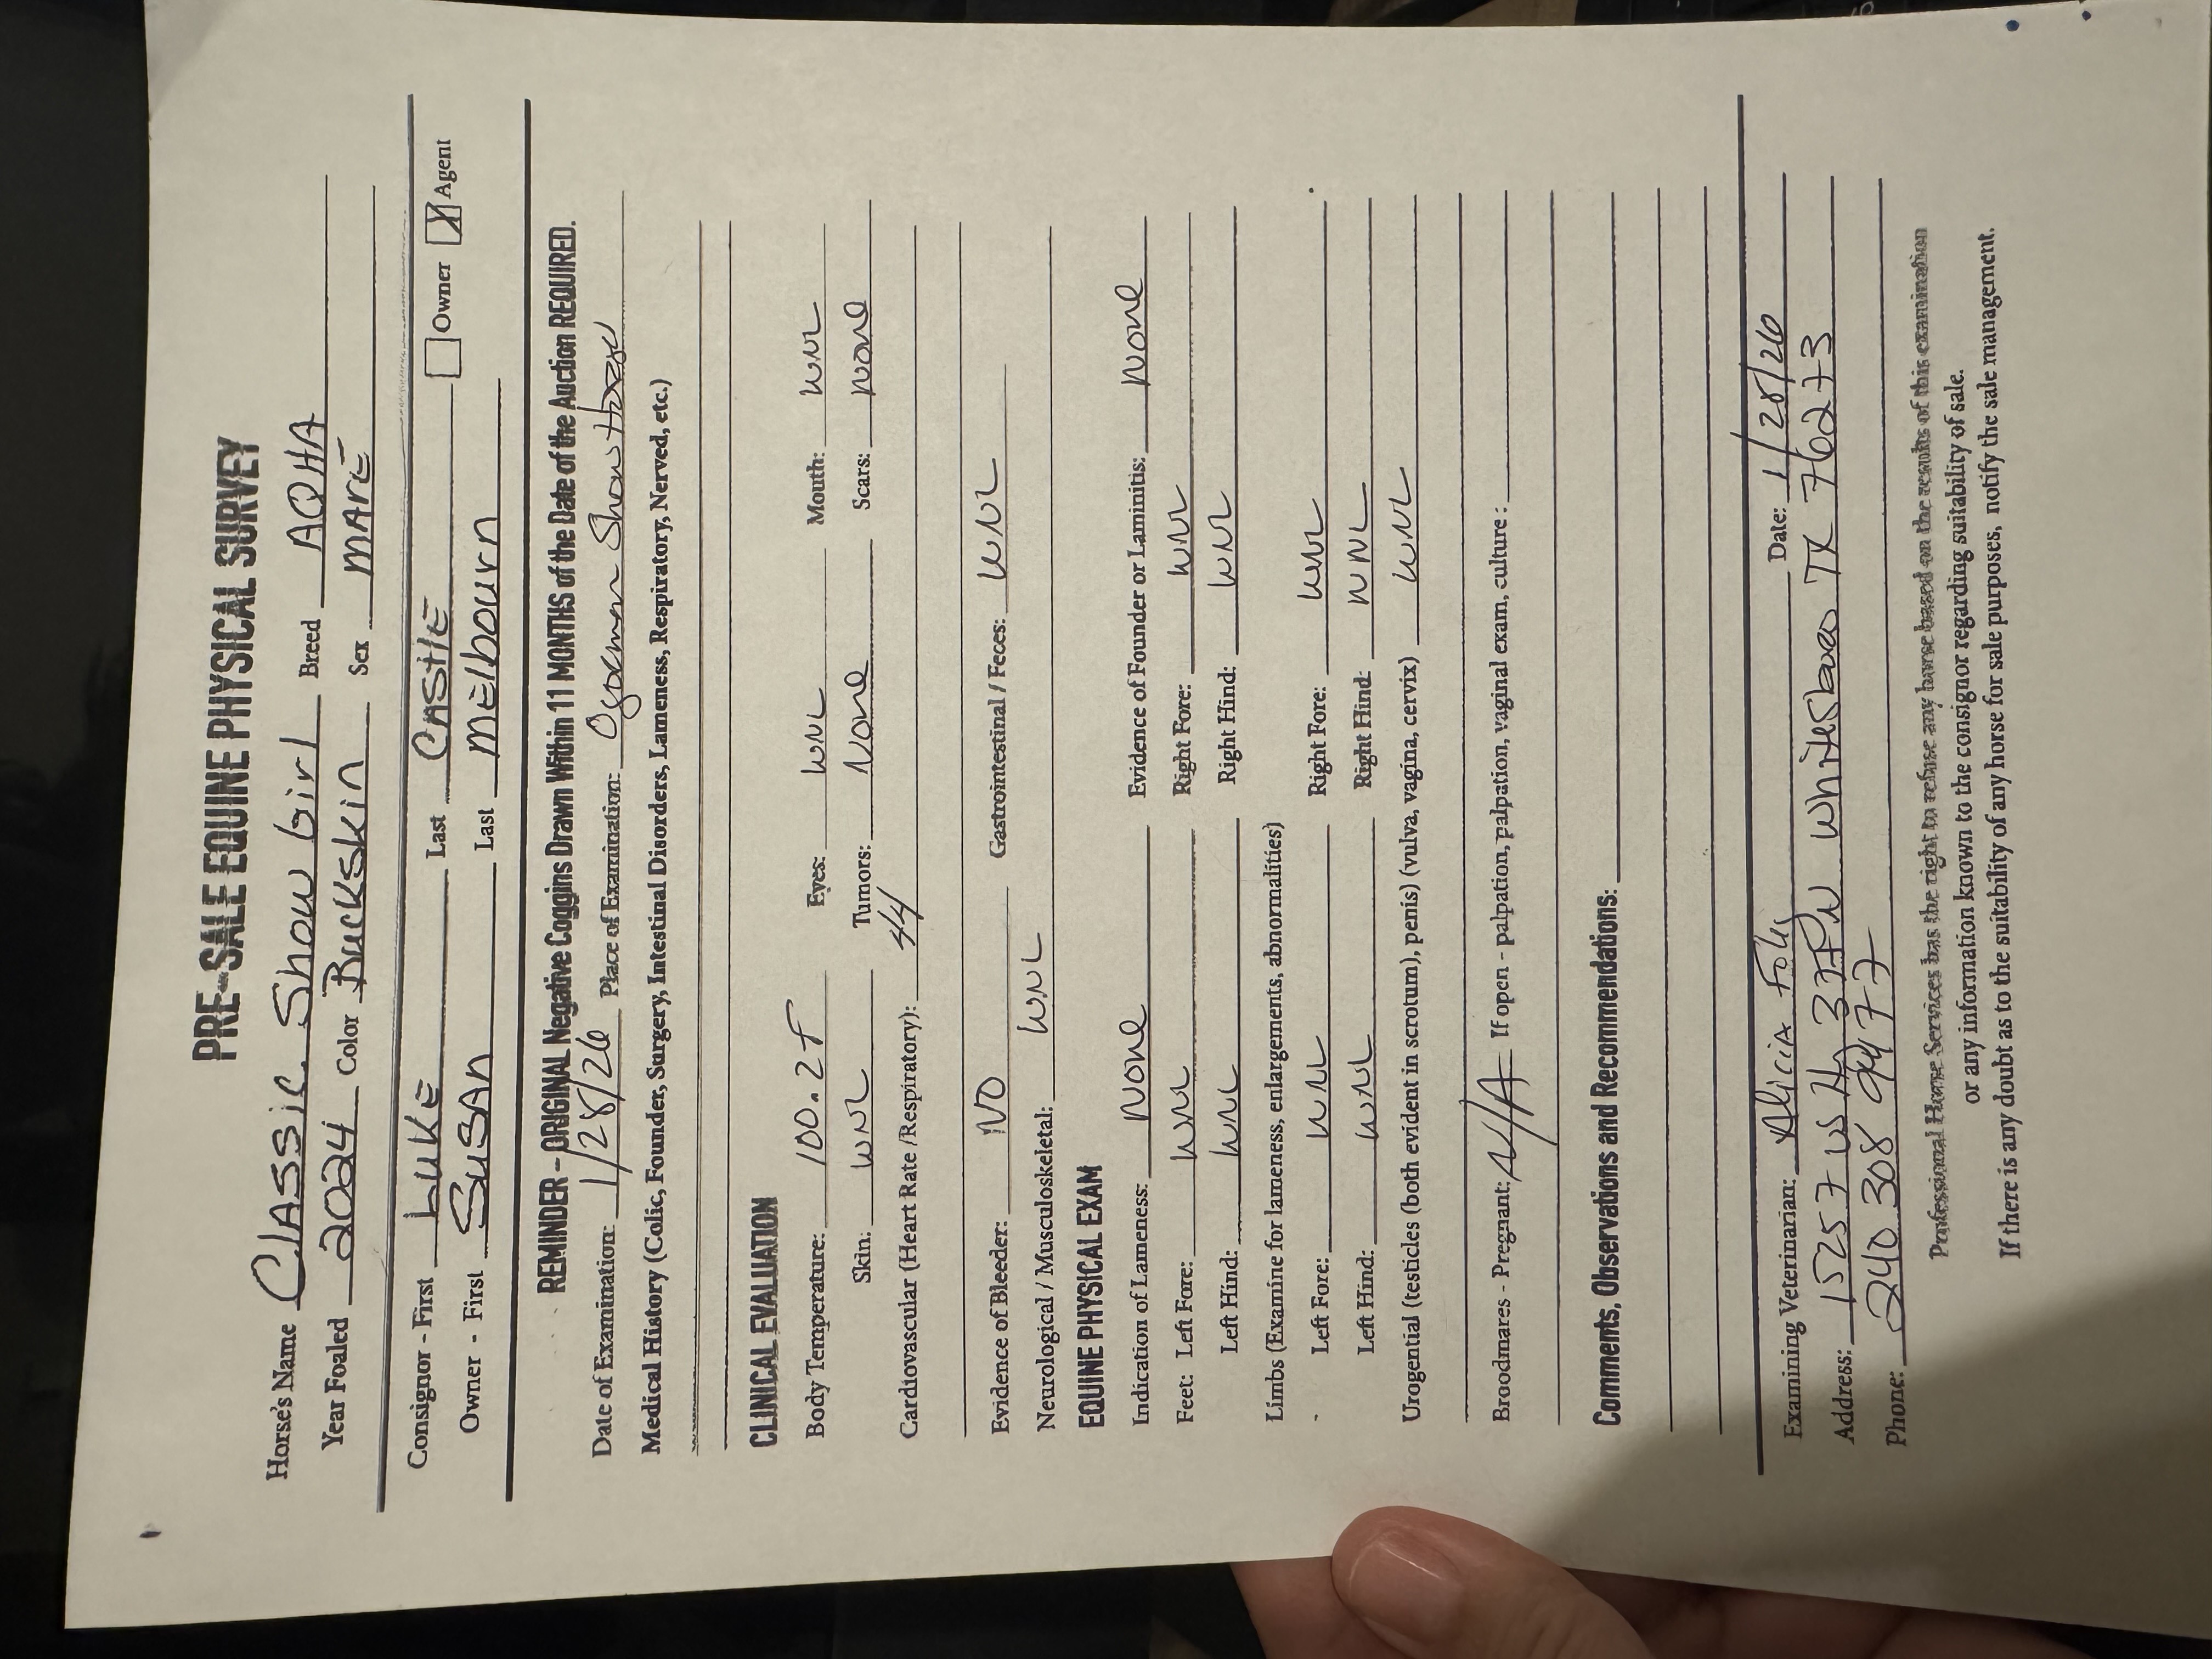 PRE-SALE EQUINE PHYSICAL SURVEY
Horse's Name Classic Show Girl Breed AQHA
Year Foaled 2024 Color Buckskin Sex MARE
Consignor - First LUKE Last CASTLE Owner Agent
Owner - First SUSAN Last MELbourn
REMINDER - ORIGINAL Negative Coggins Drawn Within 11 MONTHS of the Date of the Auction REQUIRED.
Date of Examination: 1/28/26 Place of Examination: Show
Medical History (Colic, Founder, Surgery, Intestinal Disorders, Lameness, Respiratory, Nerved, etc.)
CLINICAL EVALUATION
Body Temperature: 100.2F Eyes: WNL Mouth: WNL
Skin: WNL Tumors: None Scars: None
Cardiovascular (Heart Rate /Respiratory): 44
Evidence of Bleeder: NO Gastrointestinal / Feces: WNL
Neurological / Musculoskeletal: WNL
EQUINE PHYSICAL EXAM
Indication of Lameness: None Evidence of Founder or Laminitis: None
Feet: Left Fore: WNL Right Fore: WNL
Left Hind: WNL Right Hind: WNL
Limbs (Examine for lameness, enlargements, abnormalities)
Left Fore: WNL Right Fore: WNL
Left Hind: WNL Right Hind: WNL
Urogential (testicles (both evident in scrotum), penis) (vulva, vagina, cervix) WNL
Broodmares - Pregnant: N/A If open - palpation, palpation, vaginal exam, culture :
Comments, Observations and Recommendations:
Examining Veterinarian: Alicia Foley Date: 1/28/26
Address: 15257 US Hwy 377N Whitesboro TX 76273
Phone: 940 308 9477
Professional Horse Services has the right to refuse any horse based on the results of this examination
or any information known to the consignor regarding suitability of sale.
If there is any doubt as to the suitability of any horse for sale purposes, notify the sale management.